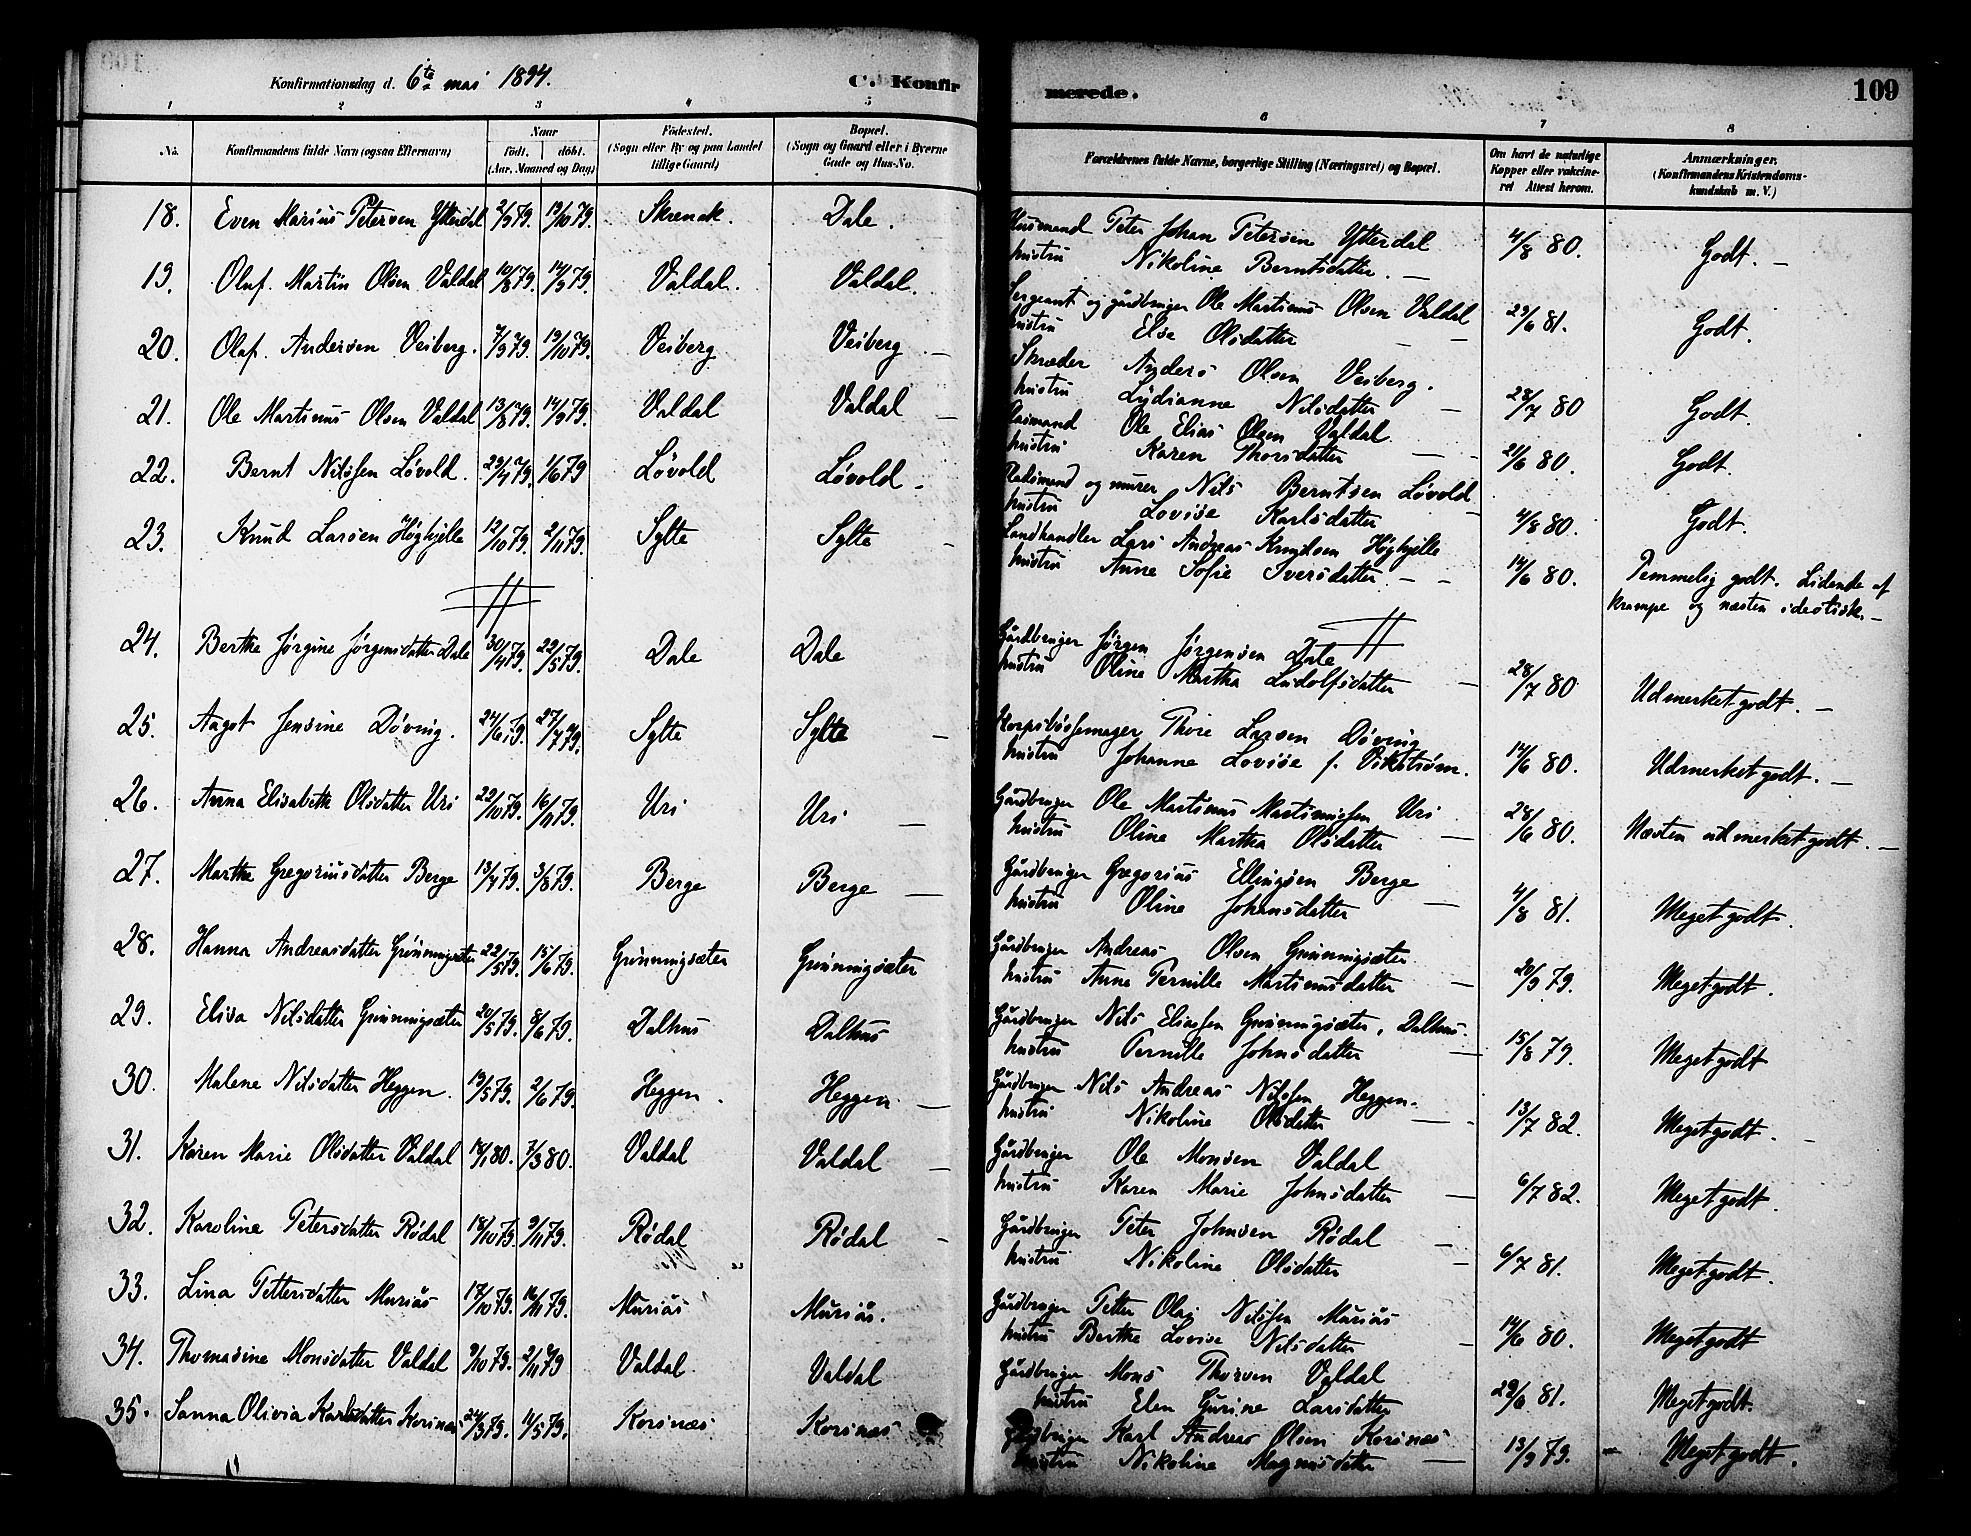 Konfirmationsdag d. 6te mai 1894. C. Konfirmerede. 109
1 2 3 4 5 6 7 8
No. Konfirmandens fulde Navn (ogsaa Efternavn) Naar født, døbt. (Aar, Maaned og Dag) Fødested. (Sogn eller By og paa Landet tillige Gaard) Bopæl. (Sogn og Gaard eller i Byerne Gade og Hus-No. Forældrenes fulde Navne, borgerlige Stilling (Næringsvei) og Bopæl. Om havt de naturlige Kopper eller vakcineret Attest herom. Anmærkninger. (Konfirmandens Kristendomskundskab m. V.)
18. Even Marius Petersen Ytterdal 2/9 79. 19/10 79. Skrenak. Dale. Husmand Peter Johan Petersen Ytterdal 4/8 80. Godt. —
hustru Nikoline Berntsdatter. —
19. Oluf Martin Olsen Valdal 10/8 79. 14/9 79. Valdal. Valdal. Sergeant og gårdbruger Ole Martinus Olsen Valdal 29/6 81. Godt.
hustru Else Olsdatter — —
20. Olaf Andersen Veiberg. 7/9 79. 19/10 79. Veiberg Veiberg — Skræder Anders Olsen Veiberg. 28/7 80 Godt.
hustru Lydianne Nilsdatter —
21. Ole Martinus Olsen Valdal 13/8 79. 14/9 79. Valdal Valdal — Ole Elias Olsen Valdal 21/6 80. Godt.
hustru Karen Thorsdatter —
22. Bernt Nilssen Løvold. 29/4 79. 1/6 79 Løvold Løvold — og murer Nils Berntsen Løvold 4/8 80. Godt.
hustru Lovise Karlsdatter —
23. Knud Larsen Høghjelle 12/10 79. 2/11 79. Sylte Sylte — Landhandler Lars Andreas Knudsen Høghjelle 14/6 80. Temmelig godt. Lidende af
hustru Anne Sofie Iversdatter — — krampe og næsten idiotisk. —
24. Berthe Jørgine Jørgensdatter Dale 30/4 79. 22/5 79. Dale Dale Gårdbruger Jørgen Jørgensen Dale 28/7 80 Udmerket godt. —
hustru Oline Martha Ludolfsdatter —
25. Aagot Jensine Døving. 24/6 79. 27/7 79. Sylte Sylte — Korpsbøssemager Thore Larsen Døving 14/6 80. Udmerket godt. —
hustru Johanne Lovise f. Vikstrøm.
26. Anna Elisabeth Olsdatter Uri 22/10 79. 16/11 79. Uri Uri — Gårdbruger Ole Martinus Martinussen Uri 28/6 80. Næsten udmerket godt. —
hustru Oline Martha Olsdatter —
27. Marthe Gregoriusdatter Berge 13/4 79. 3/8 79. Berge Berge — Gårdbruger Gregorius Ellingsen Berge 4/8 81. Meget godt.
hustru Oline Johansdatter —
28. Hanna Andreasdatter Grønningsæter 22/5 79. 15/6 79. Grønningsæter Grønningsæter Gårdbruger Andreas Olsen Grønningsæter 20/9 79. Meget godt.
hustru Anne Pernille Martinusdatter —
29. Elisa Nilsdatter Grønningsæter 20/5 79. 8/6 79. Dalhus Dalhus Gårdbruger Nils Eliassen Grønningsæter, Dalhus. 15/8 79. Meget godt
hustru Pernille Johnsdatter —
30. Malene Nilsdatter Heggen. 19/5 79. 2/6 79. Heggen. Heggen — Gårdbruger Nils Andreas Nilssen Heggen. 13/7 82. Meget godt. —
hustru Nikoline Olsdatter —
31. Karen Marie Olsdatter Valdal 18/1 80. 7/3 80. Valdal Valdal — Gårdbruger Ole Monsen Valdal 6/7 82. Meget godt.
hustru Karen Marie Johnsdatter —
32. Karoline Petersdatter Rødal 18/10 79. 9/11 79. Rødal Rødal — Gårdbruger Peter Johnsen Rødal — 6/7 81. Meget godt.
hustru Nikoline Olsdatter —
33. Lina Pettersdatter Muriås 17/10 79. 16/11 79. Muriås Muriås. Gårdbruger Petter Olaj Nilssen Muriås 14/6 80. Meget godt
hustru Berthe Lovise Nilsdatter —
34. Thomasine Monsdatter Valdal 9/10 79. 2/11 79 Valdal. Valdal Gårdbruger Mons Thorsen Valdal 29/6 81. Meget godt.
hustru Elen Gurine Larsdatter
35. Sanna Olivia Karlsdatter Korsnæs 24/3 79. 11/5 79. Korsnæs Korsnæs Gårdbruger Karl Andreas Olsen Korsnæs 13/9 79. — Meget godt.
hustru Nikoline Magnusdatter —